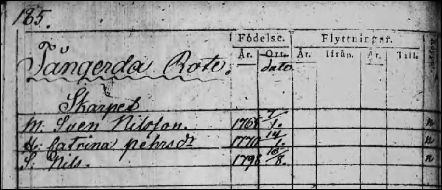 185.
Födelse. Flyttningar.
År. Ort. År. Ifrån. År. Till.
Tängerda Rote. dato
Skarpet
M. Sven Nilsson. 1768 7/1. n
H. Catrina Pehrsdr 1770 14/6. n
S. Nils. 1798 16/8. n